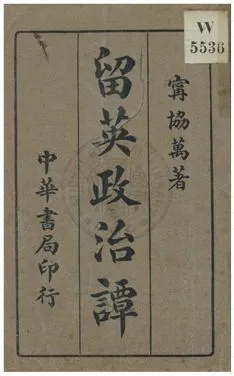 W
5536
甯協萬著
留英政治譚
中華書局印行